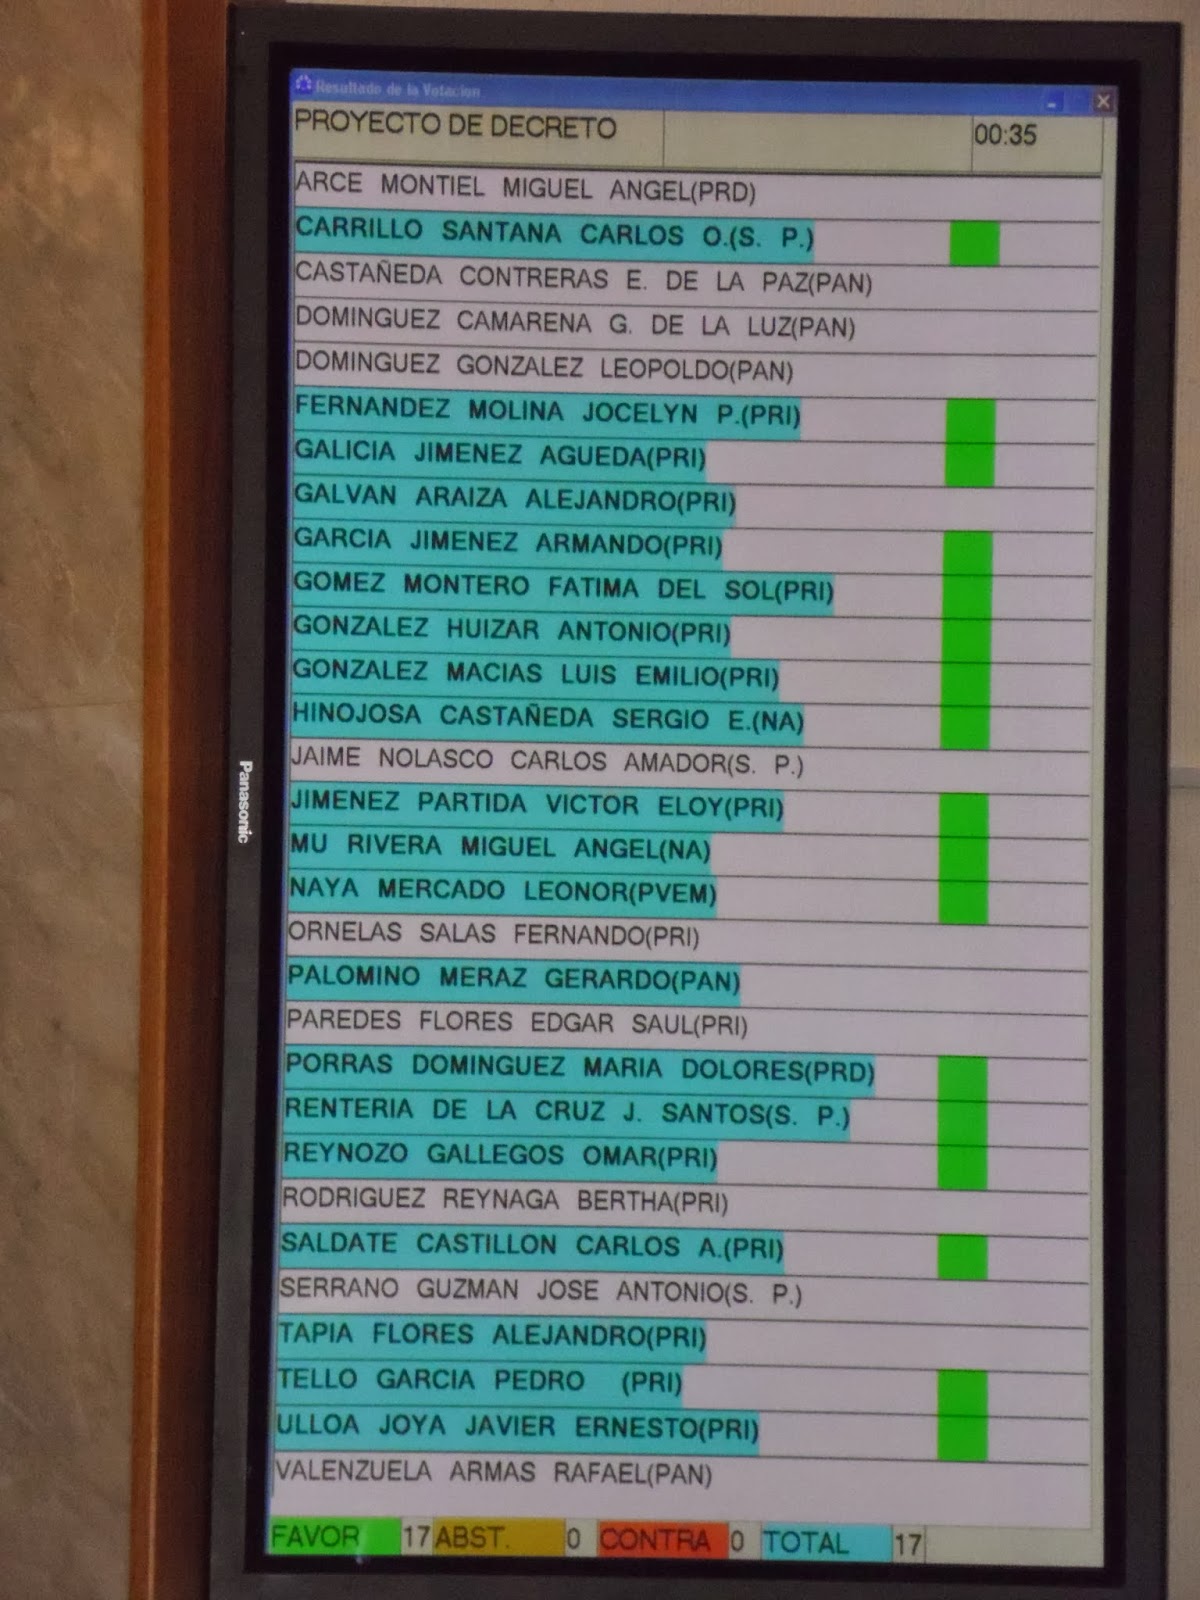 Resultado de la Votacion
PROYECTO DE DECRETO 00:35
ARCE MONTIEL MIGUEL ANGEL(PRD)
CARRILLO SANTANA CARLOS O.(S. P.)
CASTAÑEDA CONTRERAS E. DE LA PAZ(PAN)
DOMINGUEZ CAMARENA G. DE LA LUZ(PAN)
DOMINGUEZ GONZALEZ LEOPOLDO(PAN)
FERNANDEZ MOLINA JOCELYN P.(PRI)
GALICIA JIMENEZ AGUEDA(PRI)
GALVAN ARAIZA ALEJANDRO(PRI)
GARCIA JIMENEZ ARMANDO(PRI)
GOMEZ MONTERO FATIMA DEL SOL(PRI)
GONZALEZ HUIZAR ANTONIO(PRI)
GONZALEZ MACIAS LUIS EMILIO(PRI)
HINOJOSA CASTAÑEDA SERGIO E.(NA)
JAIME NOLASCO CARLOS AMADOR(S. P.)
JIMENEZ PARTIDA VICTOR ELOY(PRI)
MU RIVERA MIGUEL ANGEL(NA)
NAYA MERCADO LEONOR(PVEM)
ORNELAS SALAS FERNANDO(PRI)
PALOMINO MERAZ GERARDO(PAN)
PAREDES FLORES EDGAR SAUL(PRI)
PORRAS DOMINGUEZ MARIA DOLORES(PRD)
RENTERIA DE LA CRUZ J. SANTOS(S. P.)
REYNOZO GALLEGOS OMAR(PRI)
RODRIGUEZ REYNAGA BERTHA(PRI)
SALDATE CASTILLON CARLOS A.(PRI)
SERRANO GUZMAN JOSE ANTONIO(S. P.)
TAPIA FLORES ALEJANDRO(PRI)
TELLO GARCIA PEDRO (PRI)
ULLOA JOYA JAVIER ERNESTO(PRI)
VALENZUELA ARMAS RAFAEL(PAN)
FAVOR 17 ABST. 0 CONTRA 0 TOTAL 17
Panasonic